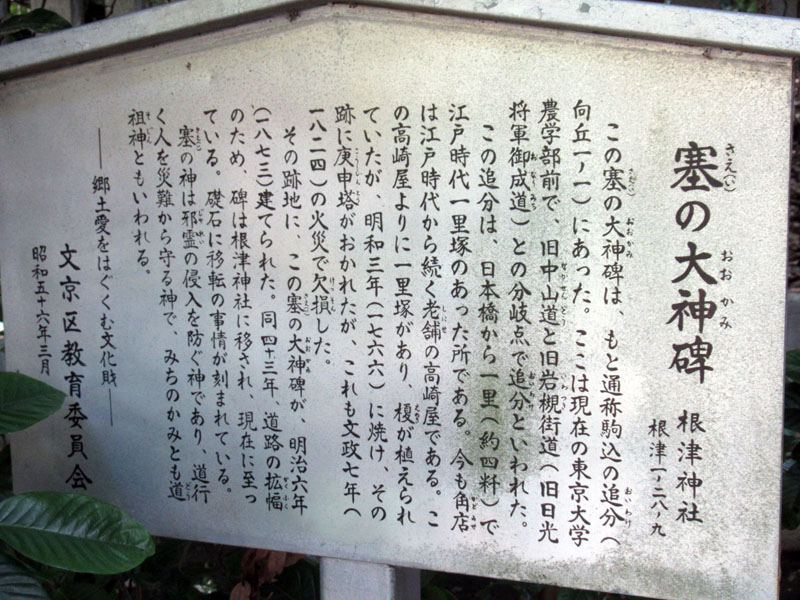 塞の大神碑 根津神社
さえ(い) おおかみ
根津一ノ二八ノ九
この塞の大神碑は、もと通称駒込の追分(
向丘一ノ一)にあった。ここは現在の東京大学
農学部前で、旧中山道と旧岩槻街道(旧日光
将軍御成道)との分岐点で追分といわれた。
この追分は、日本橋から一里(約四粁)で
江戸時代一里塚のあった所である。今も角店
は江戸時代から続く老舗の高崎屋である。こ
の高崎屋よりに一里塚があり、榎が植えられ
ていたが、明和三年(一七六六)に焼け、その
跡に庚申塔がおかれたが、これも文政七年(
一八二四)の火災で欠損した。
その跡地に、この塞の大神碑が、明治六年
(一八七三)建てられた。同四十三年、道路の拡幅
のため、碑は根津神社に移され、現在に至っ
ている。礎石に移転の事情が刻まれている。
塞の神は邪霊の侵入を防ぐ神であり、道行
く人を災難から守る神で、みちのかみとも道
祖神ともいわれる。
――郷土愛をはぐくむ文化財――
文京区教育委員会
昭和五十六年三月